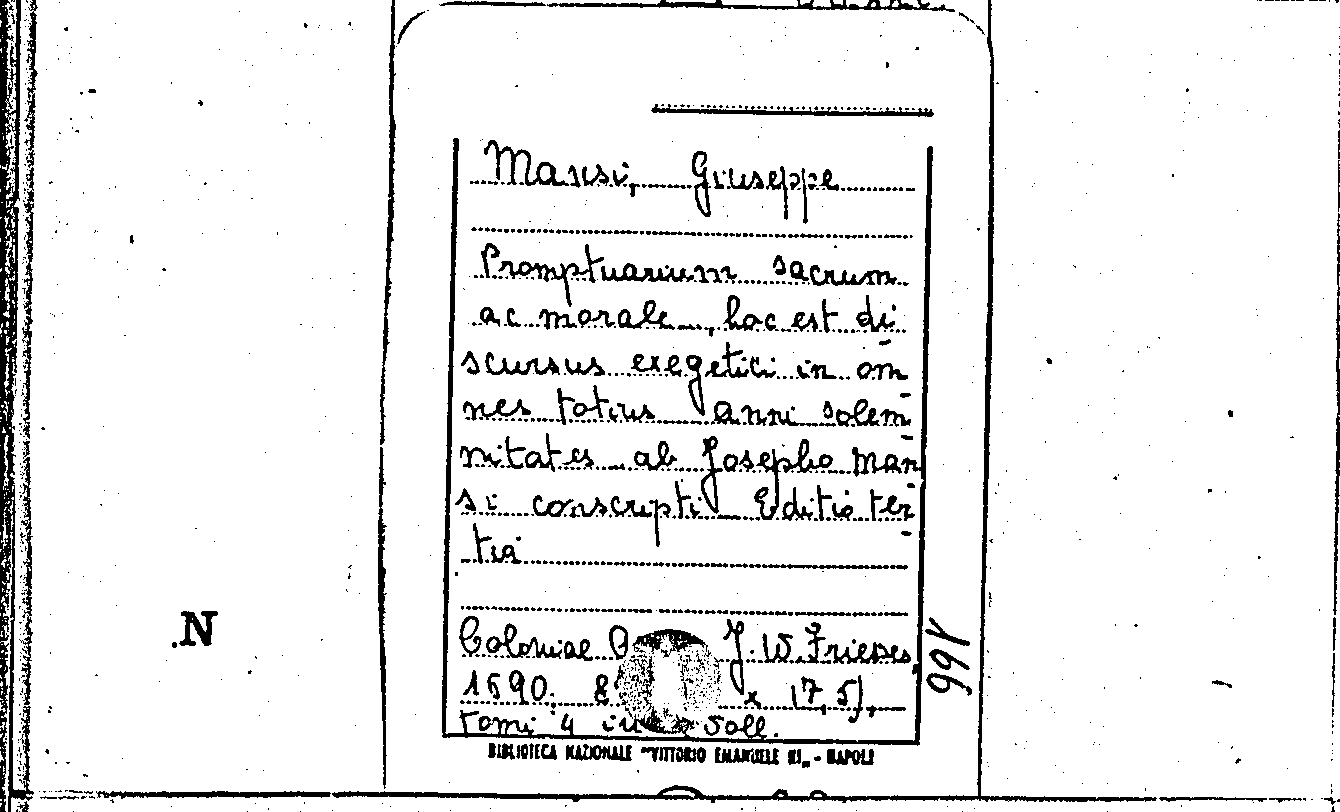 Mansi, Giuseppe
Promptuarium sacrum
ac morale, hoc est di
scursus exegetici in om
nes totius anni solem
nitates ab Josepho Man
si conscripti Editio ter
tia
Coloniae J. W. Frieses,
1690. 8 x 17,5),
tomi 4 in voll.
BIBLIOTECA NAZIONALE "VITTORIO EMANUELE III" - NAPOLI
.N
166